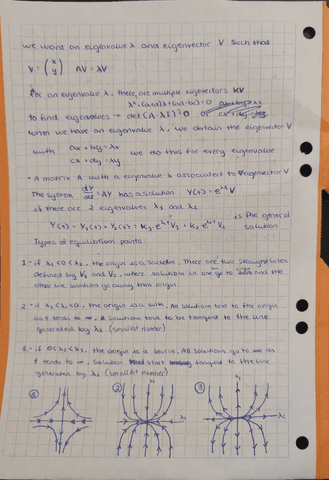 we want an eigenvalue λ and eigenvector V such that
V = (x y) AV = λV
For an eigenvalue λ, there are multiple eigenvectors kV
λ²-(a+d)λ+(ad-bc)=0
to find eigenvalues → det(A-λI)=0 or
when we have an eigenvalue λ, we obtain the eigenvector V
with ax+by=λx we do this for every eigenvalue
cx+dy=λy
A matrix A with a eigenvalue λ associated to eigenvector V
The system dY/dt = AY has a solution Y(t) = e^λt V
if there are 2 eigenvalues λ₁ and λ₂
Y(t) = Y₁(t) + Y₂(t) = k₁ e^λ₁t V₁ + k₂ e^λ₂t V₂ is the general solution
Types of equilibrium points:
1.- if λ₁<0<λ₂, the origin is a saddle. There are two straight lines
defined by V₁ and V₂, where solutions in one go to origin and the
other line solution go away from origin.
2.- if λ₁<λ₂<0, the origin is a sink. All solutions tend to the origin
as t tends to ∞. A solution tend to be tangent to the line
generated by λ₂ (smallest number)
3.- if 0<λ₂<λ₁, the origin is a source. All solutions go to ∞ as
t tends to ∞. Solution start tangent to the line
generated by λ₂ (smallest number)
① ② ③